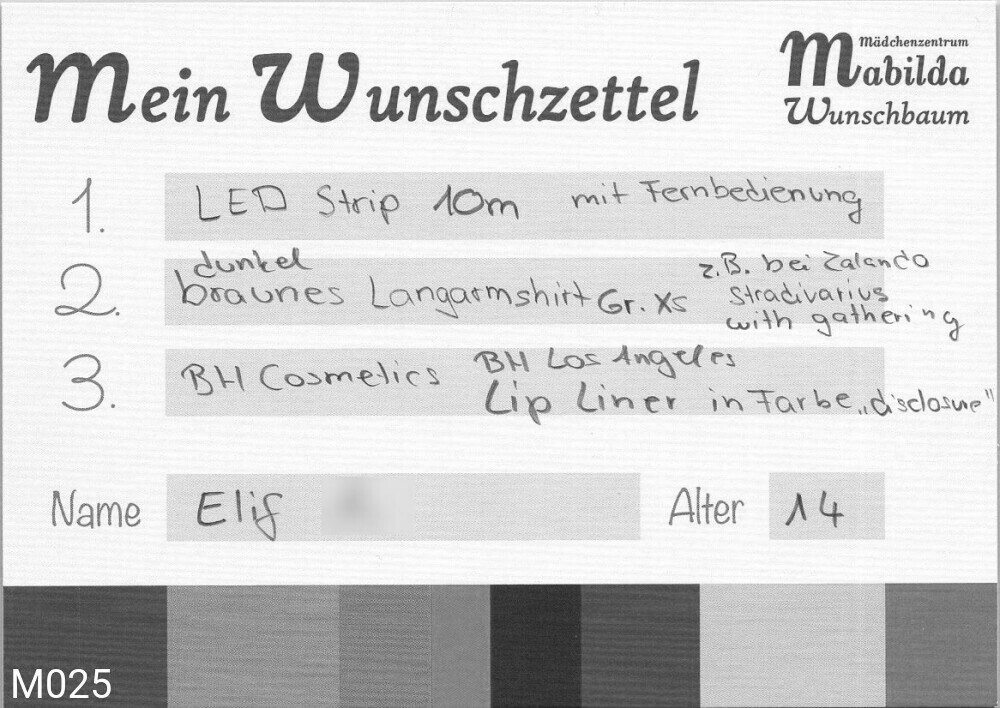 Mein Wunschzettel
Mädchenzentrum
Mabilda
Wunschbaum
1. LED Strip 10m mit Fernbedienung
2. dunkel
braunes Langarmshirt Gr. XS
z.B. bei Zalando
Stradivarius
with gathering
3. BH Cosmetics
BH Los Angeles
Lip Liner in Farbe „disclosure"
Name Elif
Alter 14
M025